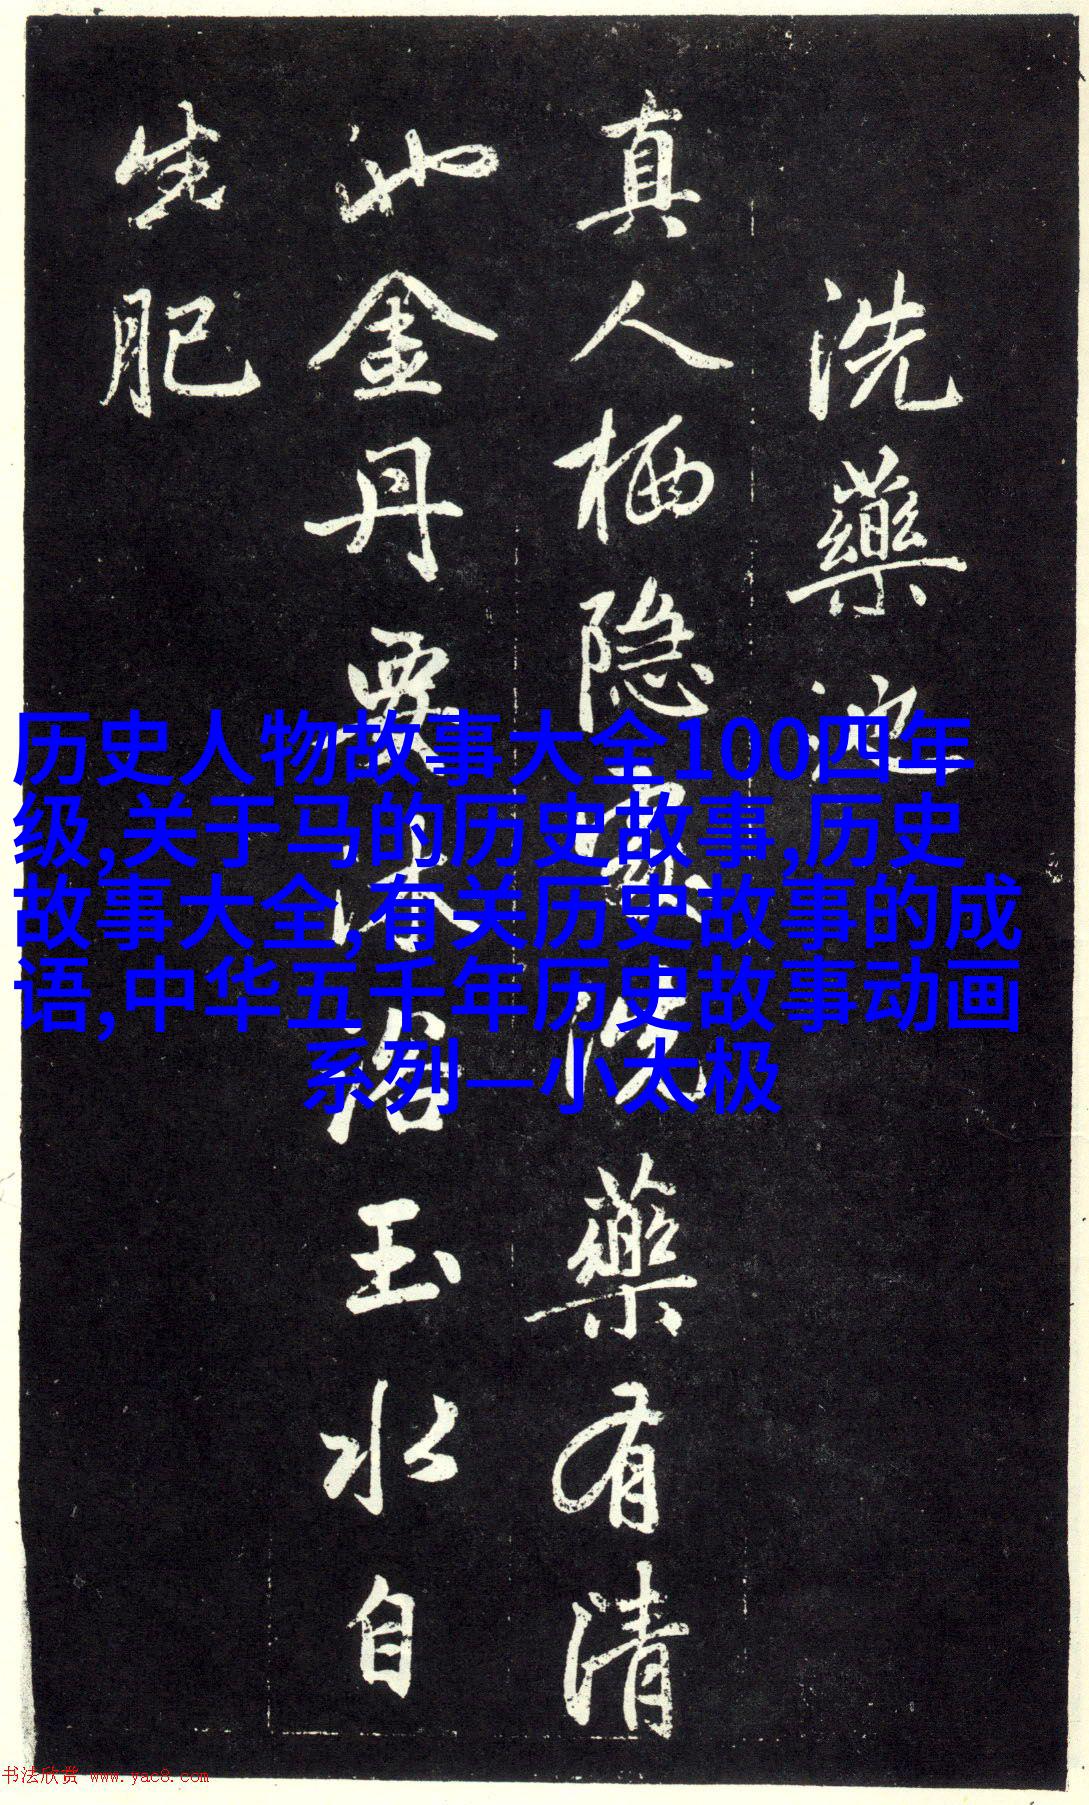 洗藥池
真人栖隐處洗藥有清
池金丹要沐浴玉水自
生肥
历史人物故事大全100四年
级,关于马的历史故事,历史
故事大全,有关历史故事的成
语,中华五千年历史故事动画
系列—小太极
书法欣赏 www.yac8.com